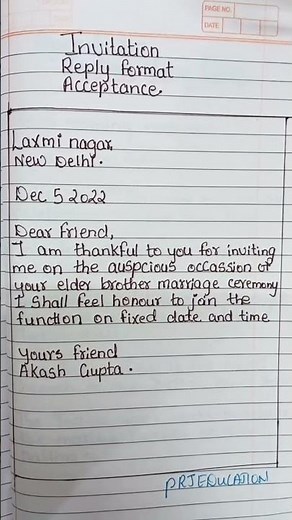 PAGE NO.
DATE
Invitation
Reply format
Acceptance.
Laxmi nagar,
New Delhi.
Dec 5 2022
Dear friend,
I am thankful to you for inviting
me on the auspcious occassion of
your elder brother marriage ceremony
I shall feel honour to join the
function on fixed date and time
yours friend
Akash Gupta.
PRJEDUCATION